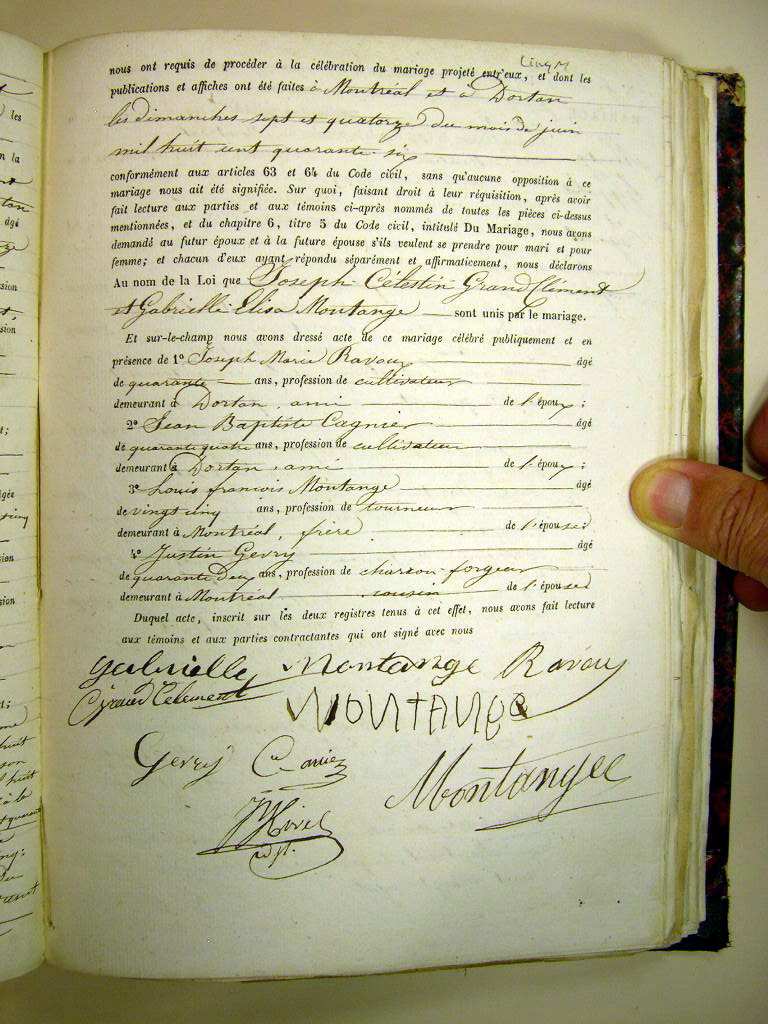 nous ont requis de procéder à la célébration du mariage projeté entr'eux, et dont les
publications et affiches ont été faites à Montréal et à Dortan
les dimanches sept et quatorze du mois de juin
mil huit cent quarante six
conformément aux articles 63 et 64 du Code civil, sans qu'aucune opposition à ce
mariage nous ait été signifiée. Sur quoi, faisant droit à leur réquisition, après avoir
fait lecture aux parties et aux témoins ci-après nommés de toutes les pièces ci-dessus
mentionnées, et du chapitre 6, titre 5 du Code civil, intitulé Du Mariage, nous avons
demandé au futur époux et à la future épouse s'ils veulent se prendre pour mari et pour
femme; et chacun d'eux ayant répondu séparément et affirmativement, nous déclarons
Au nom de la Loi que Joseph Célestin Grand Clément
et Gabrielle Elisa Montange — sont unis par le mariage.
Et sur-le-champ nous avons dressé acte de ce mariage célébré publiquement et en
présence de 1° Joseph Marie Ravoux âgé
de quarante ans, profession de cultivateur
demeurant à Dortan, ami de l'époux;
2° Jean Baptiste Cagnier âgé
de quarante quatre ans, profession de cultivateur
demeurant à Dortan, ami de l'époux;
3° Louis francois Montange âgé
de vingt cinq ans, profession de tourneur
demeurant à Montréal, frère de l'épouse;
4° Justin Gevry âgé
de quarante deux ans, profession de charron-forgeur
demeurant à Montréal cousin de l'épouse;
Duquel acte, inscrit sur les deux registres tenus à cet effet, nous avons fait lecture
aux témoins et aux parties contractantes qui ont signé avec nous
gabrielle Montange Ravoux
Montange
Gevry
Montangee